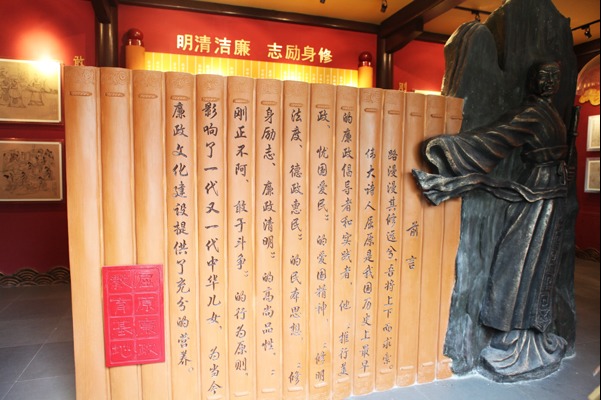 修身励志 廉洁清明
敢
前言
路漫漫其修远兮,吾将上下而求索。
伟大诗人屈原是我国历史上最早
的廉政倡导者和实践者,他“推行美
政、忧国爱民”的爱国精神,“修明
法度、德政惠民”的民本思想,“修
身励志、廉政清明”的高尚品性,“
刚正不阿、敢于斗争”的行为原则,
影响了一代又一代中华儿女,为当今
廉政文化建设提供了充分的营养。
屈原廉政
教育基地